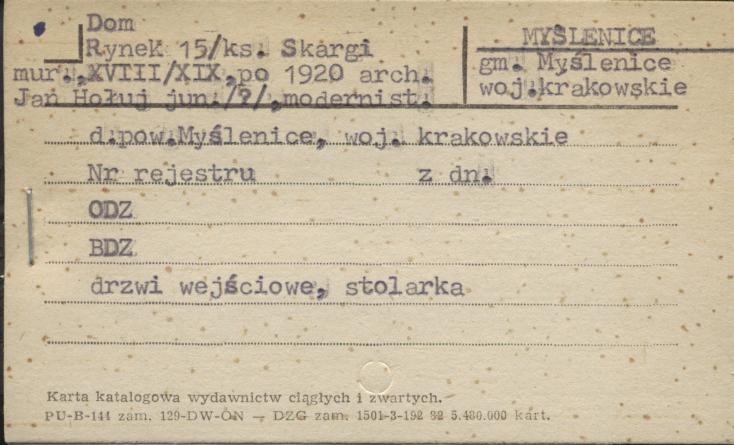 Dom
Rynek 15/ks. Skargi
mur.,XVIII/XIX,po 1920 arch.
Jan Hołuj jun./?/,modernist.
MYŚLENICE
gm. Myślenice
woj.krakowskie
d.pow.Myślenice, woj. krakowskie
Nr rejestru z dn.
ODZ
BDZ
drzwi wejściowe, stolarka
Karta katalogowa wydawnictw ciągłych i zwartych.
PU-B-144 zam. 129-DW-ON — DZG zam. 1501-3-192 82 5.480.000 kart.